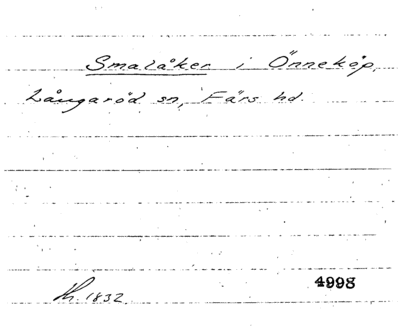 Smalåker i Önneköp,
Långaröd sn, Färs hd.
1832
4998